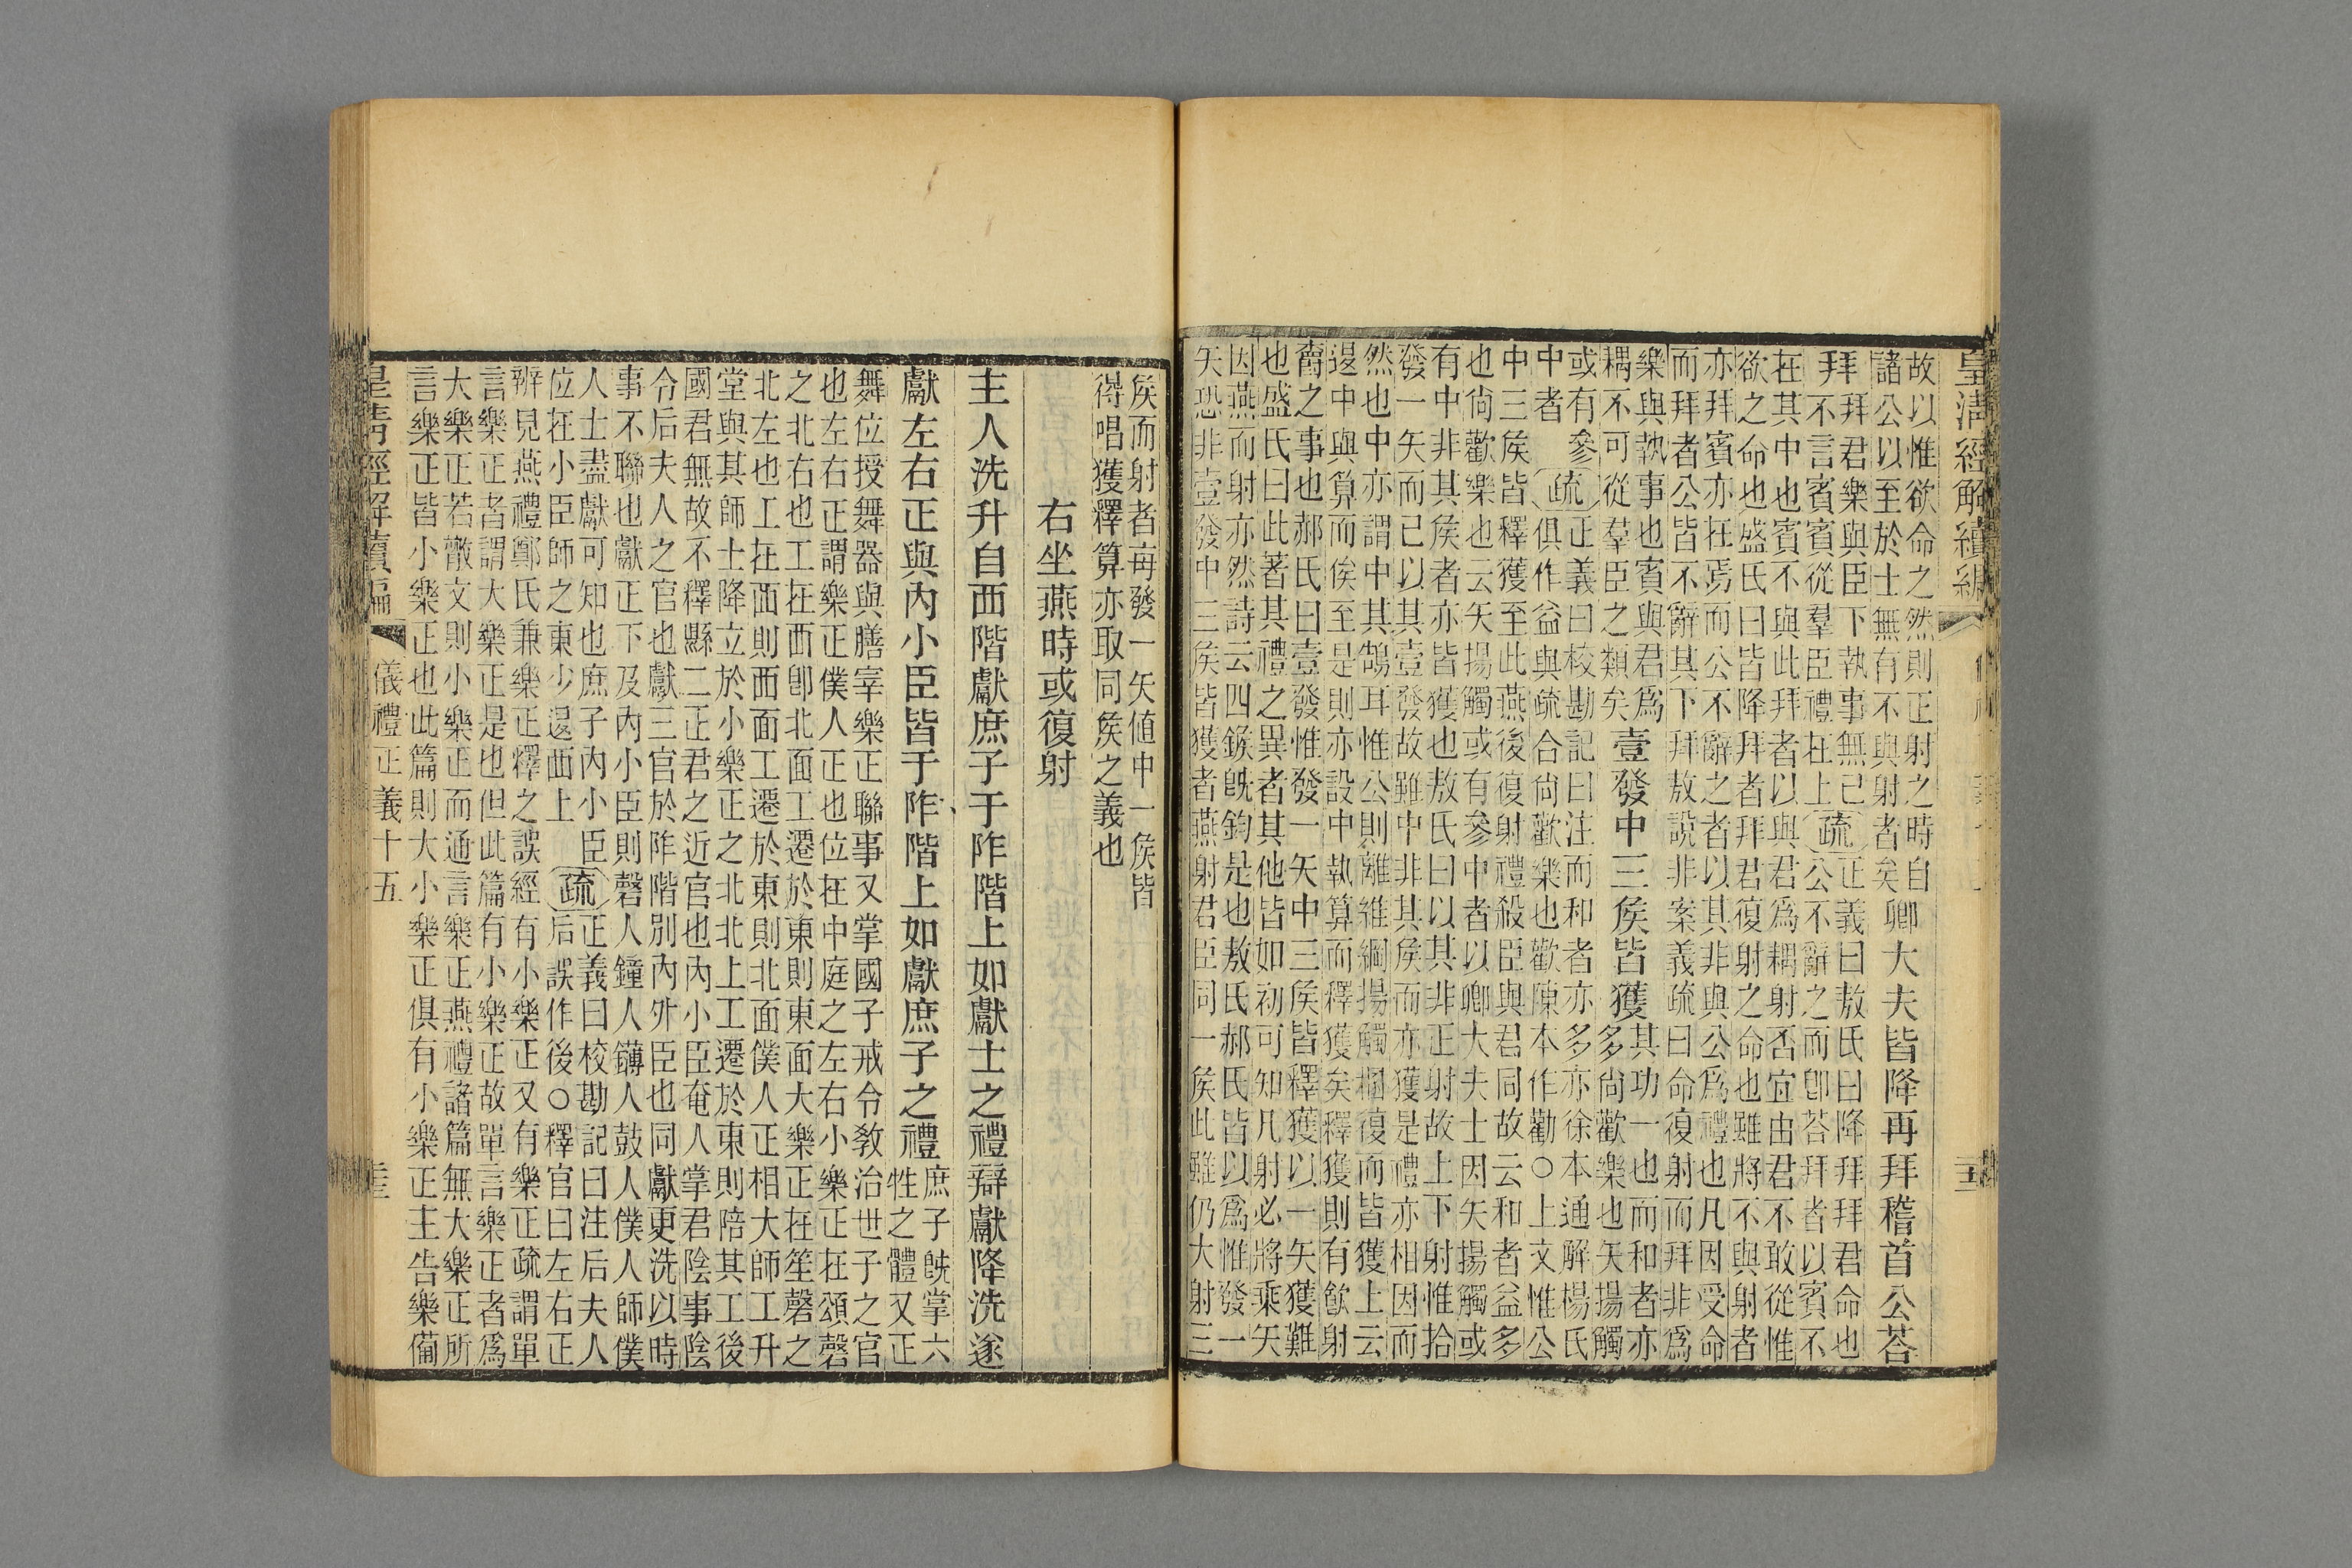 皇淸經解續編
故以惟欲命之然則正射之時自
諸公以至於士無有不與射者矣
卿大夫皆降再拜稽首公荅
拜
拜君樂與臣下執事無已
不言賓賓從羣臣禮在上
疏
正義曰敖氏曰降拜拜君命也
公不辭之而卽荅拜者以賓不
在其中也賓不與此拜者以與君爲耦射否宜由君不敢從惟
欲之命也盛氏曰皆降拜者拜君復射之命也雖將不與射者
亦拜賓亦在焉而公不辭之者以其非與公爲禮也凡因受命
而拜者公皆不辭其下拜敖說非案義疏曰命復射而拜非爲
樂與執事也賓與君爲
耦不可從羣臣之類矣
壹發中三矦皆獲
其功一也而和者亦
多尚歡樂也矢揚觸
或有參
中者
疏
正義曰校勘記曰注而和者亦多亦徐本通解楊氏
俱作益與疏合尚歡樂也歡陳本作勸○上文惟公
中三矦皆釋獲至此燕後復射禮殺臣與君同故云和者益多
也尚歡樂也云矢揚觸或有參中者以卿大夫士因矢揚觸或
有中非其矦者亦皆獲也敖氏曰以其非正射故上下射惟拾
發一矢而已以其壹發故雖中非其矦而亦獲是禮亦相因而
然也中亦謂中其鵠耳惟公則離維綱揚觸梱復而皆獲上云
退中與算而俟至是則亦設中執算而釋獲矣釋獲則有飮射
爵之事也郝氏曰壹發惟發一矢中三矦皆釋獲以一矢獲難
也盛氏曰此著其禮之異者其他皆如初可知凡射必將乘矢
因燕而射亦然詩云四鍭旣鈞是也敖氏郝氏皆以爲惟發一
矢恐非壹發中三矦皆獲者燕射君臣同一矦此雖仍大射三
矦而射者每發一矢値中一矦皆
得唱獲釋算亦取同矦之義也
右坐燕時或復射
主人洗升自西階獻庶子于阼階上如獻士之禮辯獻降洗遂
獻左右正與內小臣皆于阼階上如獻庶子之禮
庶子旣掌六
牲之體又正
舞位授舞器與膳宰樂正聯事又掌國子戒令敎治世子之官
也左右正謂樂正僕人正也位在中庭之左右小樂正在頌磬
之北右也工在西卽北面工遷於東則東面大樂正在笙磬之
北左也工在西則西面工遷於東則北面僕人正相大師工升
堂與其師士降立於小樂正之北北上工遷於東則陪其工後
國君無故不釋縣二正君之近官也內小臣奄人掌君陰事陰
令后夫人之官也獻三官於阼階別內外臣也同獻更洗以時
事不聯也獻正下及內小臣則磬人鐘人鎛人鼓人僕人師僕
人士盡獻可知也庶子內小臣
位在小臣師之東少退西上
疏
正義曰校勘記曰注后夫人
后誤作後○釋官曰左右正
辨見燕禮鄭氏兼樂正釋之誤經有小樂正又有樂正疏謂單
言樂正者謂大樂正是也但此篇有小樂正故單言樂正者爲
大樂正若散文則小樂正而通言樂正燕禮諸篇無大樂正所
言樂正皆小樂正也此篇則大小樂正俱有小樂正主告樂備
皇淸經解續編 儀禮正義十五